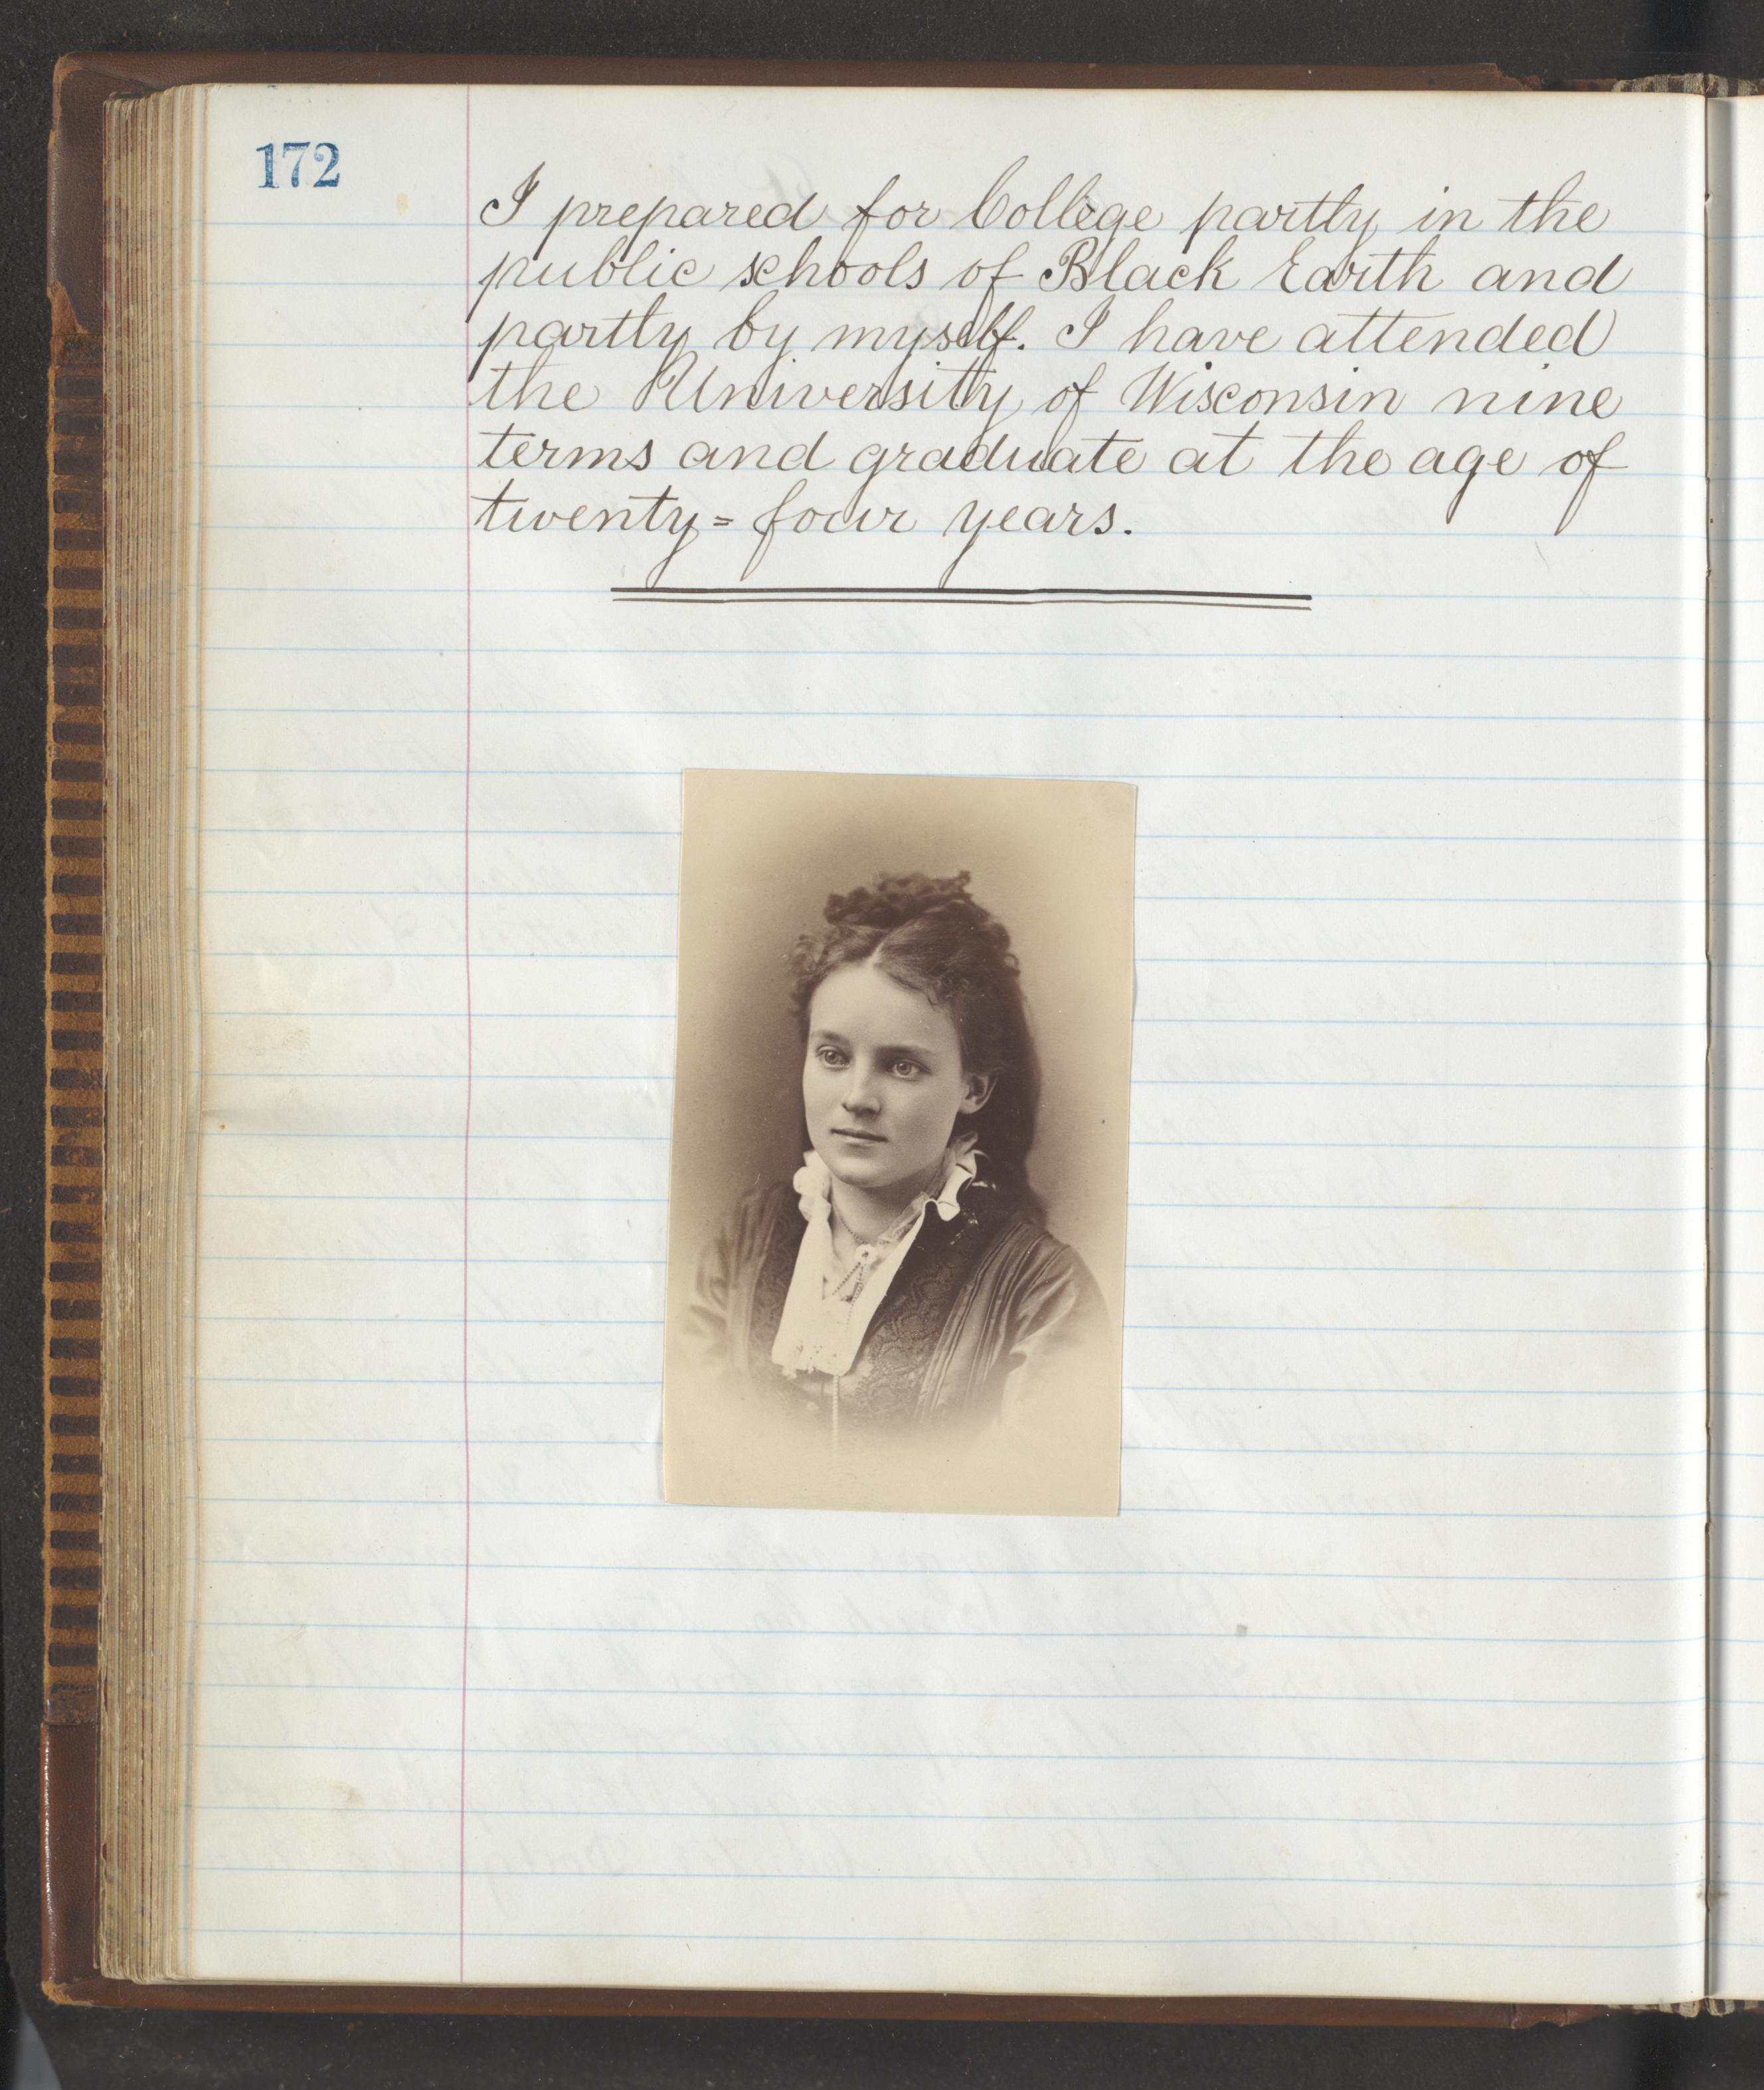 172
I prepared for College partly in the
public schools of Black Earth and
partly by myself. I have attended
the University of Wisconsin nine
terms and graduate at the age of
twenty=four years.